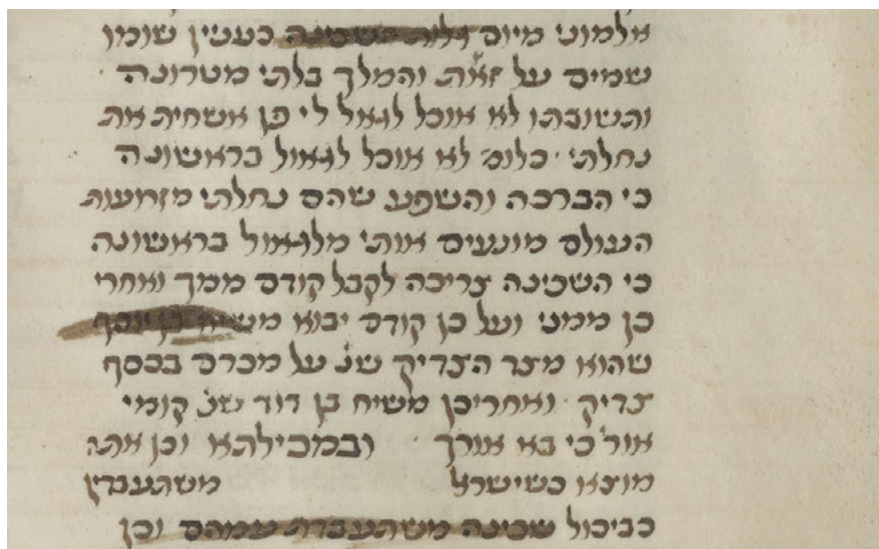 אלמוני מיום גלות השכינה כענין שומו
שמים על זאת והמלך בלתי מטרונה
ותשובתו לא אוכל לגאל לי פן אשחית את
נחלתי · כלומ׳ לא אוכל לגאול בראשונה
כי הברכה והשפע שהם נחלתי מזרועות
העולם מונעים אותי מלגאול בראשונה
כי השכינה צריכה לקבל קודם ממך ואחרי
כן ממני ועל כן קודם יבוא משיח בן יוסף
שהוא מצד הצדיק שנ׳ על מכרם בכסף
צדיק · ואחריכן משיח בן דוד שנ׳ קומי
אורי כי בא אורך ובמכילתא וכן אתה
מוצא כשישראל משתעבדין
כביכול שכינה משתעבדת עמהם וכן